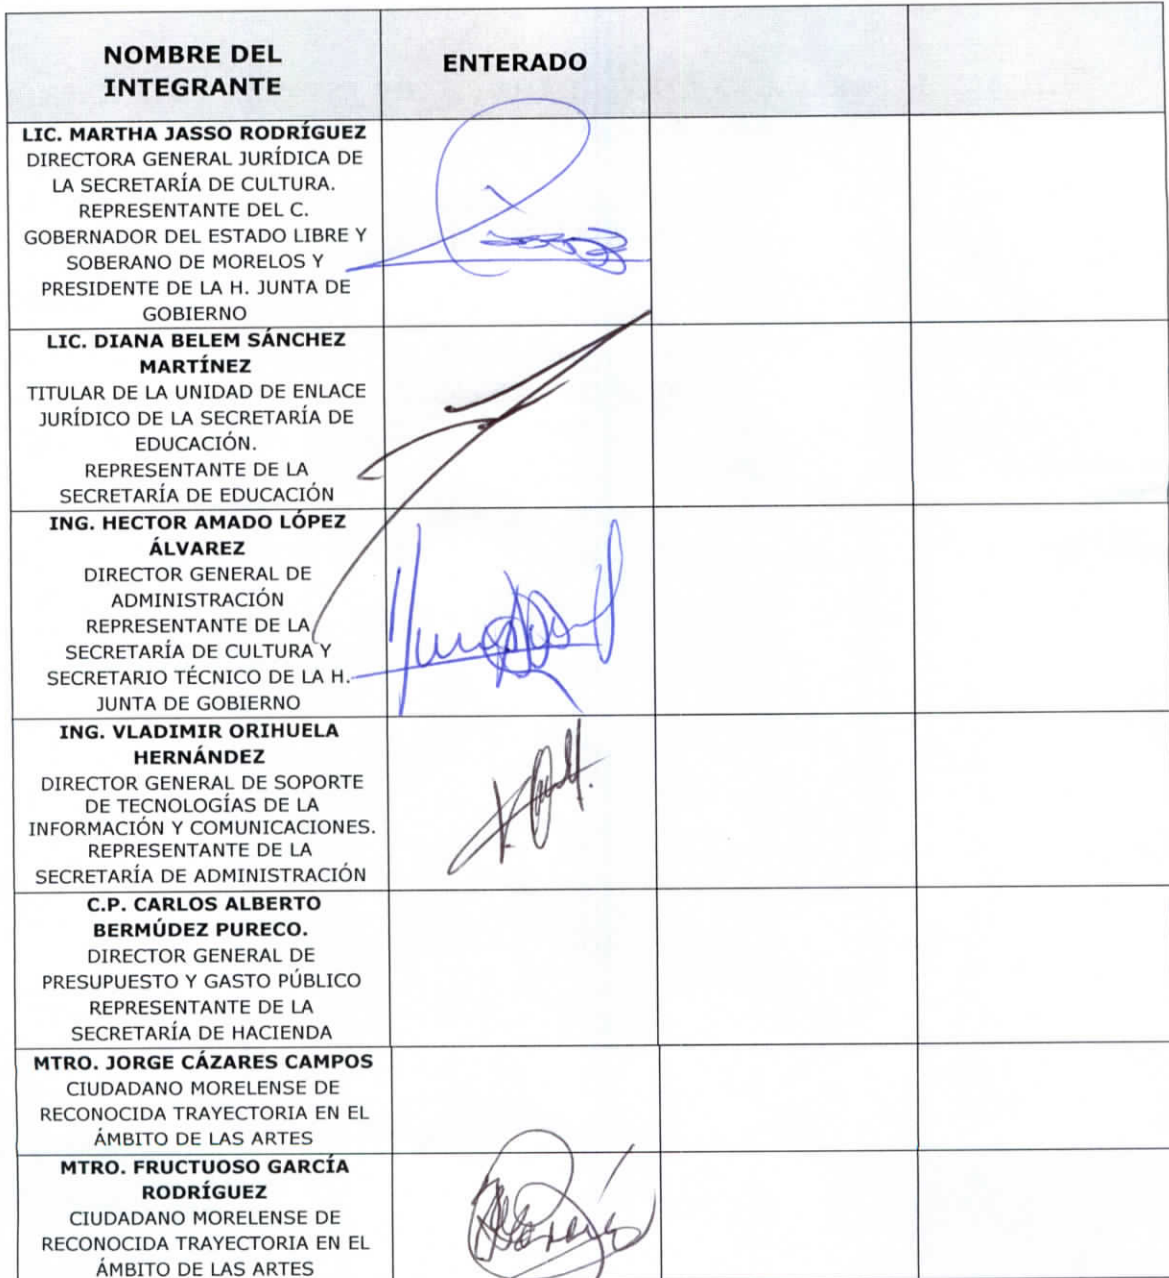 NOMBRE DEL
INTEGRANTE
ENTERADO
LIC. MARTHA JASSO RODRÍGUEZ
DIRECTORA GENERAL JURÍDICA DE
LA SECRETARÍA DE CULTURA.
REPRESENTANTE DEL C.
GOBERNADOR DEL ESTADO LIBRE Y
SOBERANO DE MORELOS Y
PRESIDENTE DE LA H. JUNTA DE
GOBIERNO
LIC. DIANA BELEM SÁNCHEZ
MARTÍNEZ
TITULAR DE LA UNIDAD DE ENLACE
JURÍDICO DE LA SECRETARÍA DE
EDUCACIÓN.
REPRESENTANTE DE LA
SECRETARÍA DE EDUCACIÓN
ING. HECTOR AMADO LÓPEZ
ÁLVAREZ
DIRECTOR GENERAL DE
ADMINISTRACIÓN
REPRESENTANTE DE LA
SECRETARÍA DE CULTURA Y
SECRETARIO TÉCNICO DE LA H.
JUNTA DE GOBIERNO
ING. VLADIMIR ORIHUELA
HERNÁNDEZ
DIRECTOR GENERAL DE SOPORTE
DE TECNOLOGÍAS DE LA
INFORMACIÓN Y COMUNICACIONES.
REPRESENTANTE DE LA
SECRETARÍA DE ADMINISTRACIÓN
C.P. CARLOS ALBERTO
BERMÚDEZ PURECO.
DIRECTOR GENERAL DE
PRESUPUESTO Y GASTO PÚBLICO
REPRESENTANTE DE LA
SECRETARÍA DE HACIENDA
MTRO. JORGE CÁZARES CAMPOS
CIUDADANO MORELENSE DE
RECONOCIDA TRAYECTORIA EN EL
ÁMBITO DE LAS ARTES
MTRO. FRUCTUOSO GARCÍA
RODRÍGUEZ
CIUDADANO MORELENSE DE
RECONOCIDA TRAYECTORIA EN EL
ÁMBITO DE LAS ARTES